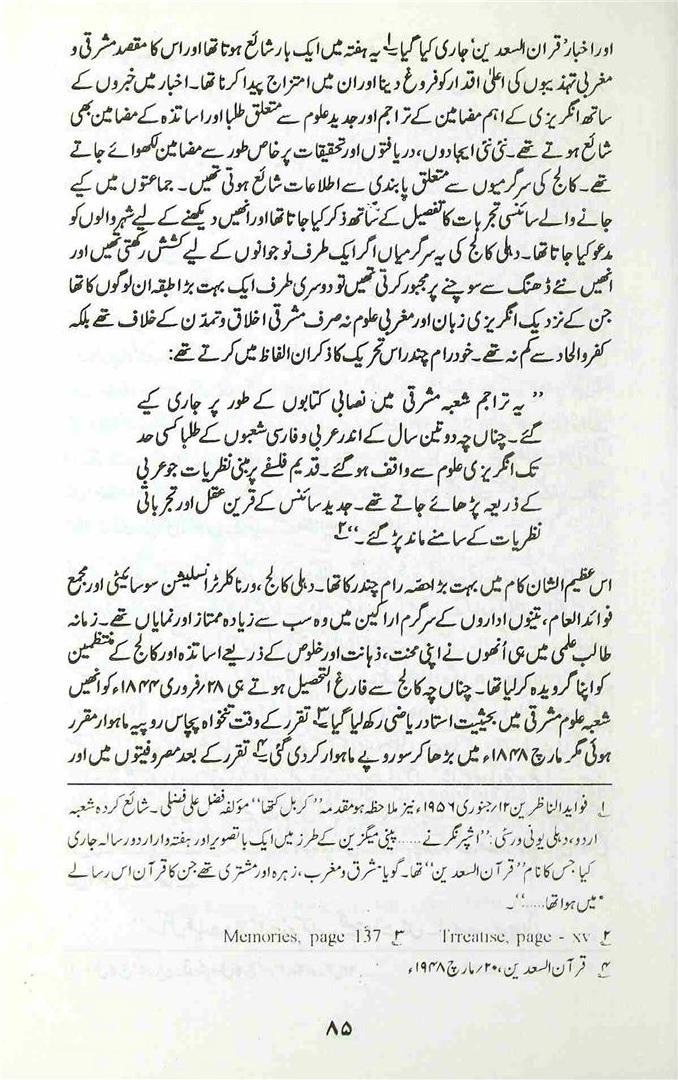 اور اخبار ’قران السعدین‘ جاری کیا گیا۔۱ یہ ہفتہ میں ایک بار شائع ہوتا تھا اور اس کا مقصد مشرقی و
مغربی تہذیبوں کی اعلیٰ اقدار کو فروغ دینا اور ان میں امتزاج پیدا کرنا تھا۔ اخبار میں خبروں کے
ساتھ انگریزی کے اہم مضامین کے تراجم اور جدید علوم سے متعلق طلبا اور اساتذہ کے مضامین بھی
شائع ہوتے تھے۔ نئی نئی ایجادوں، دریافتوں اور تحقیقات پر خاص طور سے مضامین لکھوائے جاتے
تھے۔ کالج کی سرگرمیوں سے متعلق پابندی سے اطلاعات شائع ہوتی تھیں۔ جماعتوں میں کیے
جانے والے سائنسی تجربات کا تفصیل کے ساتھ ذکر کیا جاتا تھا اور انھیں دیکھنے کے لیے شہر والوں کو
مدعو کیا جاتا تھا۔ دہلی کالج کی یہ سرگرمیاں اگر ایک طرف نوجوانوں کے لیے کشش رکھتی تھیں اور
انھیں نئے ڈھنگ سے سوچنے پر مجبور کرتی تھیں تو دوسری طرف ایک بہت بڑا طبقہ ان لوگوں کا تھا
جن کے نزدیک انگریزی زبان اور مغربی علوم نہ صرف مشرقی اخلاق و تمدّن کے خلاف تھے بلکہ
کفر و الحاد سے کم نہ تھے۔ خود رام چندر اس تحریک کا ذکر ان الفاظ میں کرتے تھے:
’’یہ تراجم شعبہ مشرقی میں نصابی کتابوں کے طور پر جاری کیے
گئے۔ چناں چہ دو تین سال کے اندر عربی و فارسی شعبوں کے طلبا کسی حد
تک انگریزی علوم سے واقف ہو گئے۔ قدیم فلسفے پر مبنی نظریات جو عربی
کے ذریعہ پڑھائے جاتے تھے۔ جدید سائنس کے قرین عقل اور تجرباتی
نظریات کے سامنے ماند پڑ گئے۔‘‘۲
اس عظیم الشان کام میں بہت بڑا حصّہ رام چندر کا تھا۔ دہلی کالج، ورناکلر ٹرانسلیشن سوسائیٹی اور مجمع
فوائد العام، تینوں اداروں کے سرگرم اراکین میں وہ سب سے زیادہ ممتاز اور نمایاں تھے۔ زمانہ
طالب علمی میں ہی اُنھوں نے اپنی محنت، ذہانت اور خلوص کے ذریعے اساتذہ اور کالج کے منتظمین
کو اپنا گرویدہ کر لیا تھا۔ چناں چہ کالج سے فارغ التحصیل ہوتے ہی ۲۸؍فروری ۱۸۴۴ء کو انھیں
شعبہ علوم مشرقی میں بحیثیت استاد ریاضی رکھ لیا گیا۔۳ تقرر کے وقت تنخواہ پچاس روپیہ ماہوار مقرر
ہوئی مگر مارچ ۱۸۴۸ء میں بڑھا کر سو روپے ماہوار کر دی گئی۔۴ تقرر کے بعد مصروفیتوں میں اور
۱ فواید الناظرین ۱۲؍جنوری ۱۹۵۶ء نیز ملاحظہ ہو مقدمہ ’’کربل کتھا‘‘ مؤلفہ فضل علی فضلی۔ شائع کردہ شعبہ
اردو، دہلی یونی ورسٹی: ’’اشپرنگر نے ...... پینی میگزین کے طرز میں ایک با تصویر اور ہفتہ وار اردو رسالہ جاری
کیا جس کا نام ’’قرآن السعدین‘‘ تھا۔ گویا مشرق و مغرب، زہرہ اور مشتری تھے جن کا قرآن اس رسالے
میں ہوا تھا......‘‘۔
۲ Trreatise, page - xv ۳ Memories, page 137
۴ قرآن السعدین، ۲۰؍مارچ ۱۹۴۸ء
۸۵